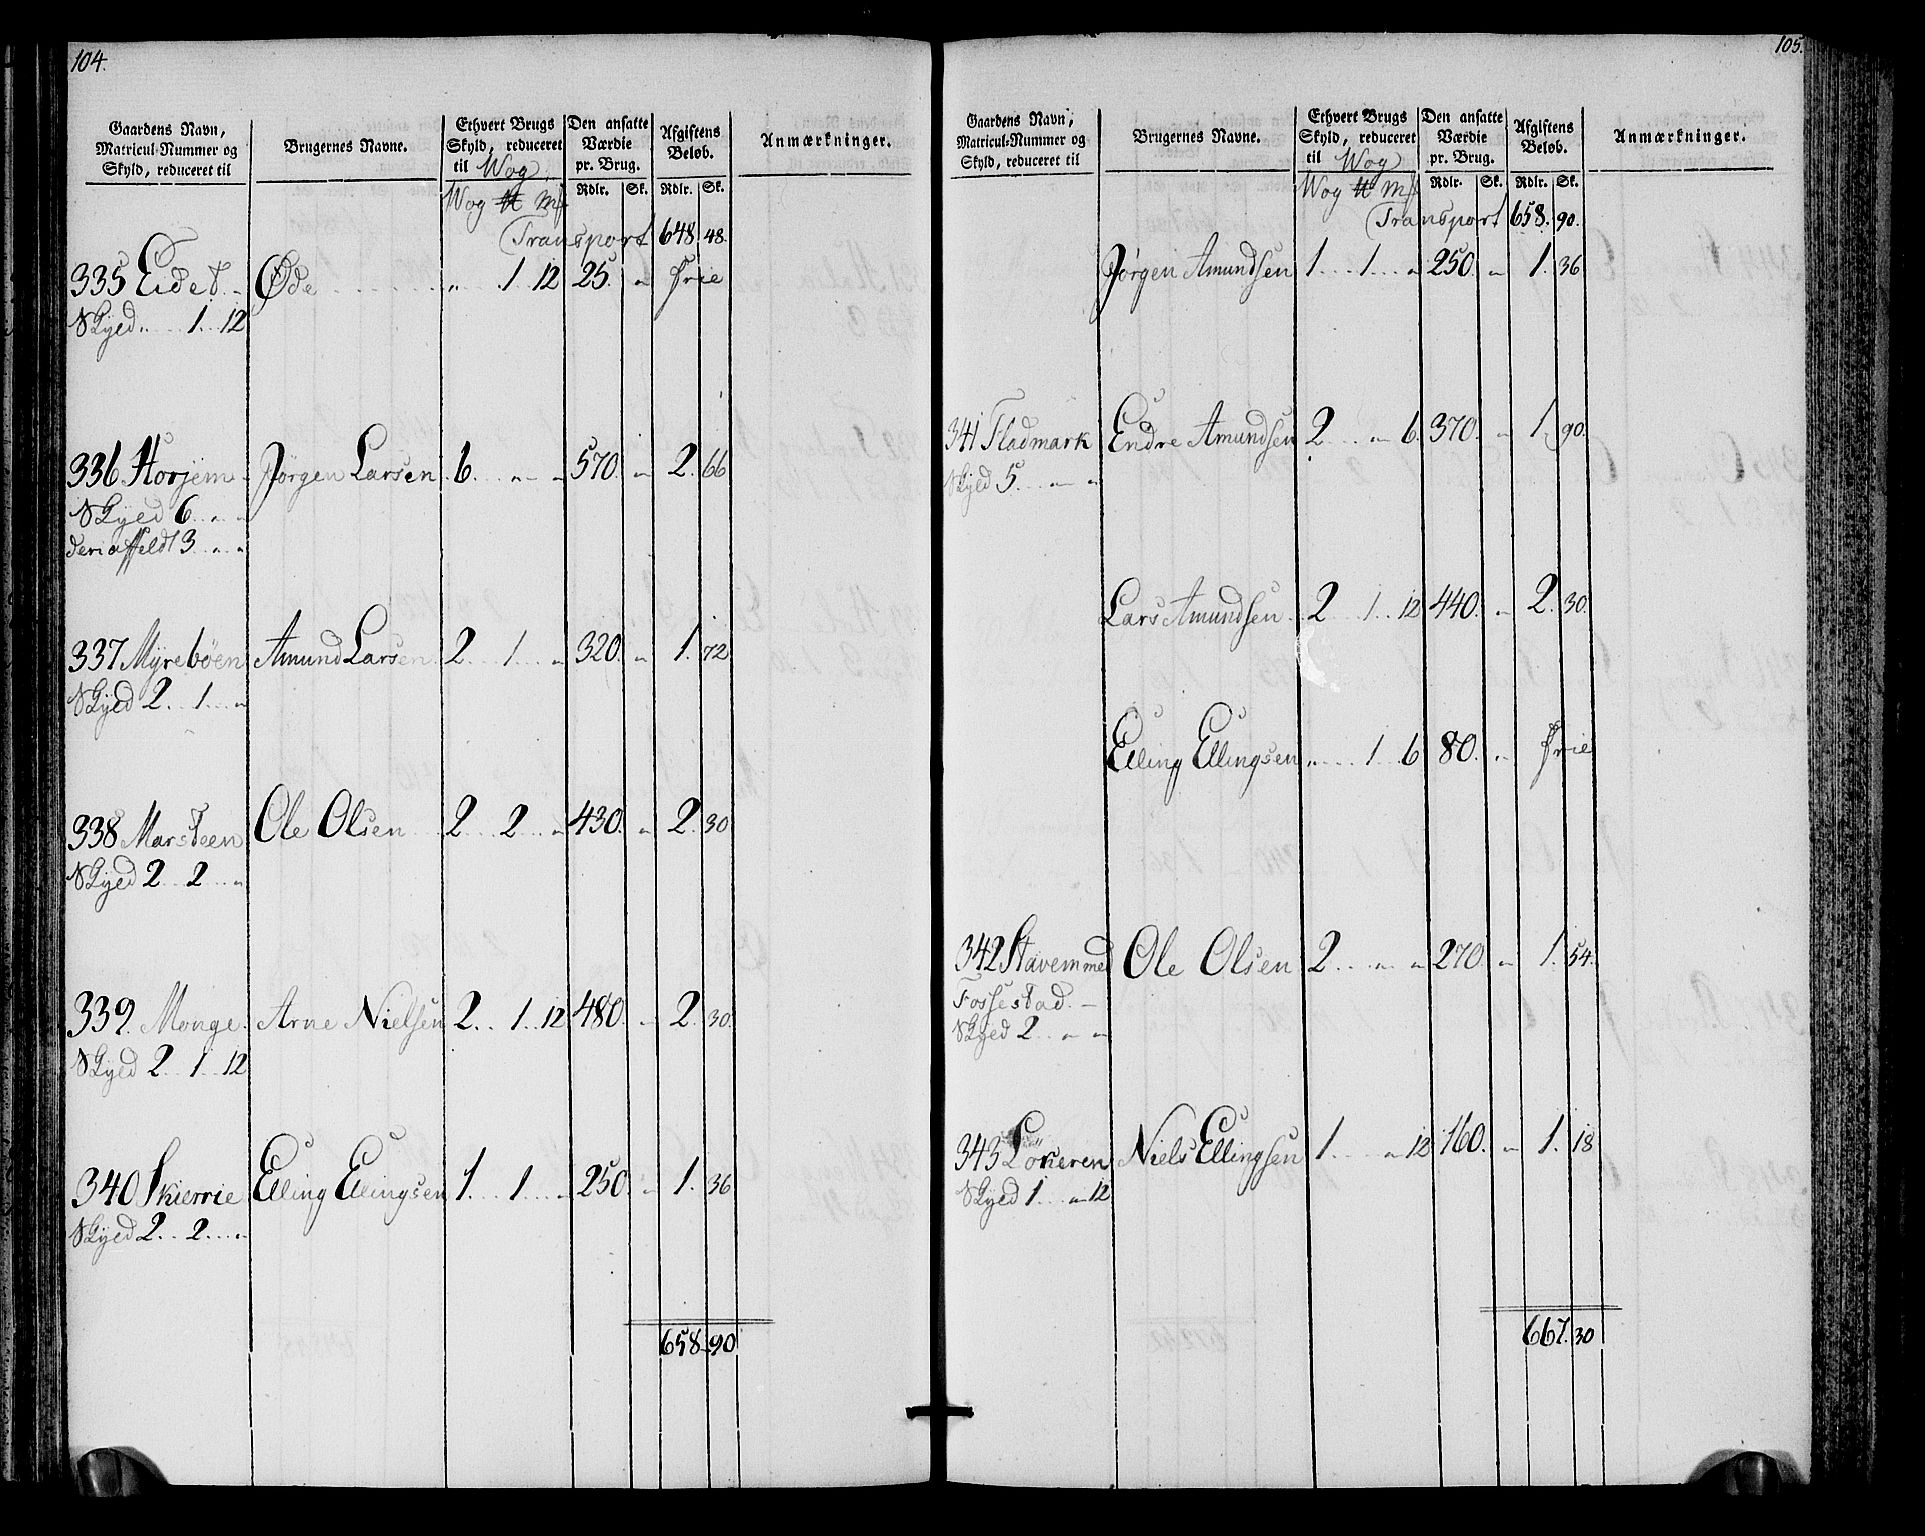 104.
Gaardens Navn, Matricul-Nummer og Skyld, reduceret til
Brugernes Navne.
Ethvert Brugs Skyld, reduceret til Wog.
Den ansatte Værdie pr. Brug.
Afgiftens Beløb.
Anmærkninger.
Wog ℔ Mk Rdlr. Sk. Rdlr. Sk.
Transport 648. 48.
335 Eidet Øde " 1 12 25. " Frie
Skyld " 1 12
336 Horjem Jørgen Larsen 6 " " 570. " 2. 66
Skyld 6 " "
deriaffeldt 3 " "
337 Myrebøen Amund Larsen 2 1 " 320. " 1. 72
Skyld 2. 1 "
338 Marsteen Ole Olsen 2 2 " 430. " 2. 30
Skyld 2 2 "
339. Monge Arne Nielsen 2 1 12 480. " 2. 30.
Skyld 2 1 12
340 Skierrie Elling Ellingsen 1 1 " 250. " 1. 36
Skyld 2 2 "
658. 90
105.
Gaardens Navn, Matricul-Nummer og Skyld, reduceret til
Brugernes Navne.
Ethvert Brugs Skyld, reduceret til Wog
Den ansatte Værdie pr. Brug.
Afgiftens Beløb.
Anmærkninger.
Wog ℔ Mk Rdlr. Sk. Rdlr. Sk.
Transport 658. 90.
Jørgen Amundsen 1 1 " 250. " 1. 36
341 Fladmark Endre Amundsen 2 " 6. 370. " 1. 90.
Skyld 5 " "
Lars Amundsen 2 1 12 440. " 2. 30.
Elling Ellingsen " 1 6 80. " Frie
342 Stavem med Ole Olsen 2 " " 270. " 1. 54.
Fossestad
Skyld 2 " "
343 Niels Ellingsen 1 " 12 160. " 1. 18
Skyld 1 " 12
667. 30